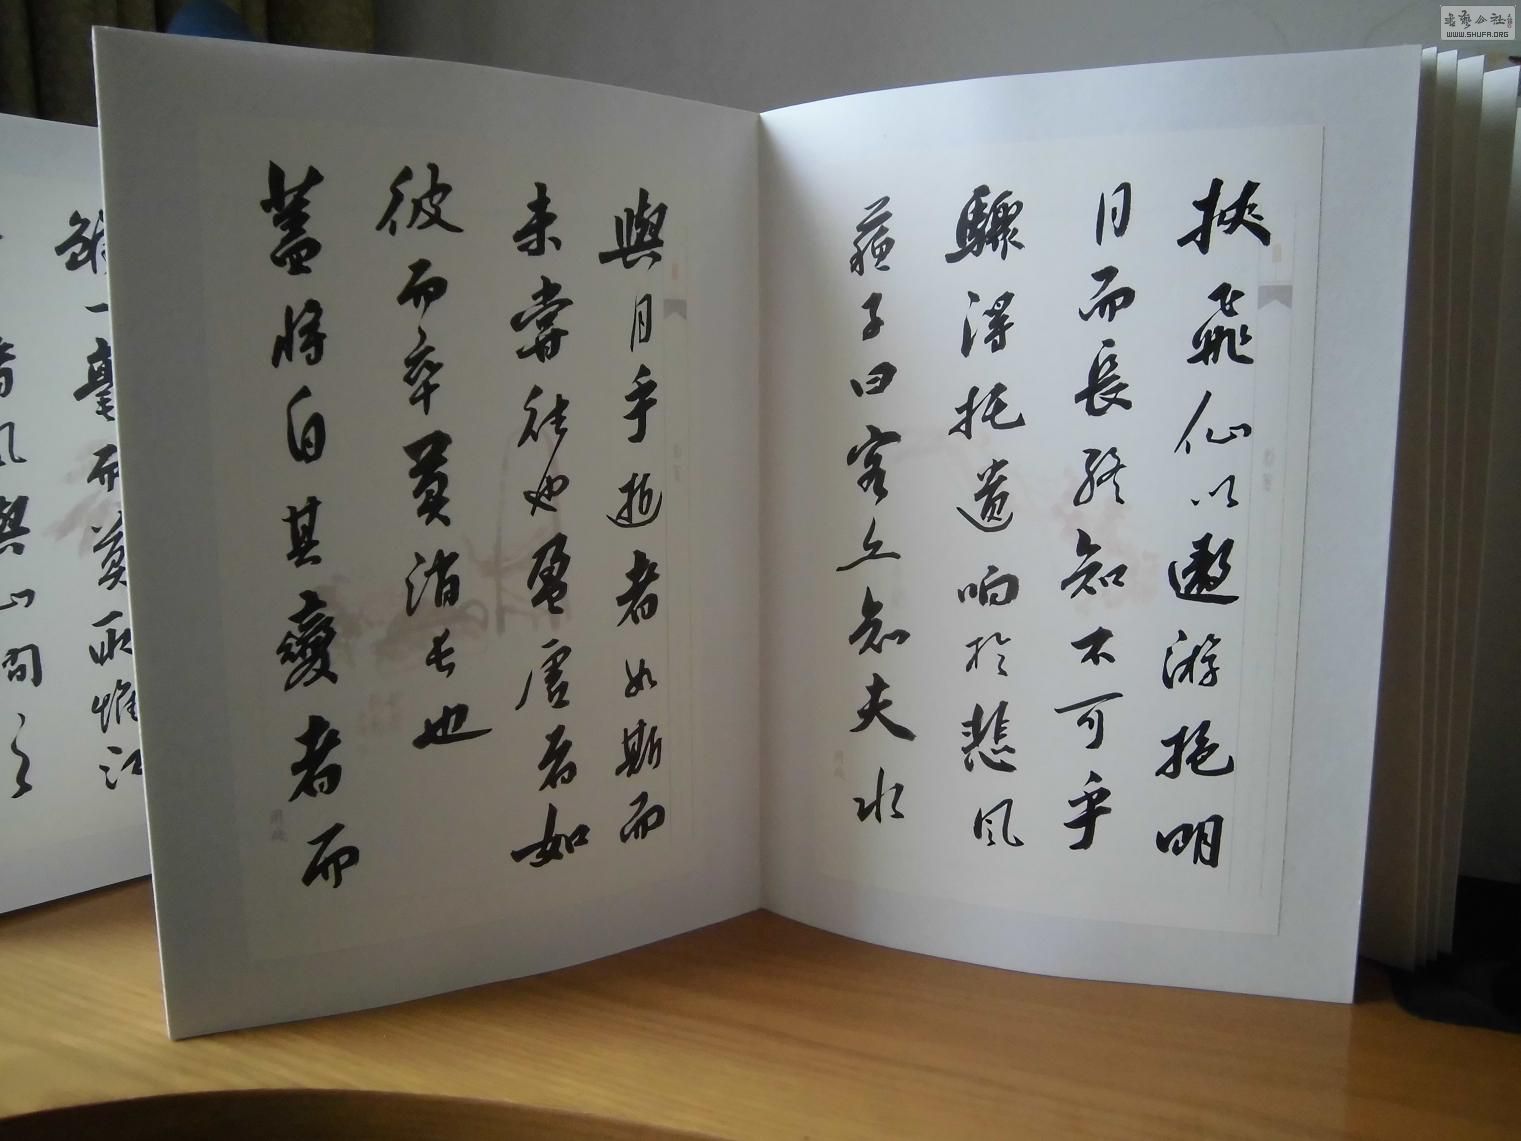 挟飛仙以遨游抱明
月而長終知不可乎
驟得托遺响於悲風
蘇子曰客亦知夫水
與月乎逝者如斯而
未嘗往也盈虚者如
彼而卒莫消長也
蓋將自其變者而
雖一毫而莫取惟江
清風與山間之
書藝公社
WWW.SHUFA.ORG